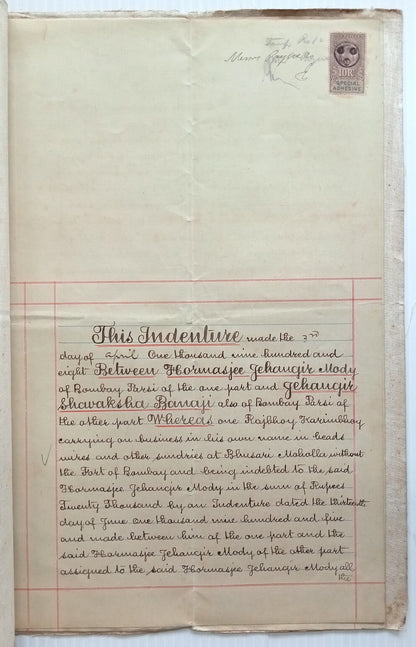 Messrs
10 RS
SPECIAL
ADHESIVE
This Indenture made the 3rd
day of April One thousand nine hundred and
eight Between Hormasjee Jehangir Mody
of Bombay Parsi of the one part and Jehangir
Shavaksha Banaji also of Bombay Parsi of
the other part Whereas one Rajbhoy Karimbhoy
carrying on business in his own name in beads
wires and other sundries at Bhusari Mohalla without
the Fort of Bombay and being indebted to the said
Hormasjee Jehangir Mody in the sum of Rupees
Twenty Thousand by an Indenture dated the thirteenth
day of June One thousand nine hundred and five
and made between him of the one part and the
said Hormasjee Jehangir Mody of the other part
assigned to the said Hormasjee Jehangir Mody all
the